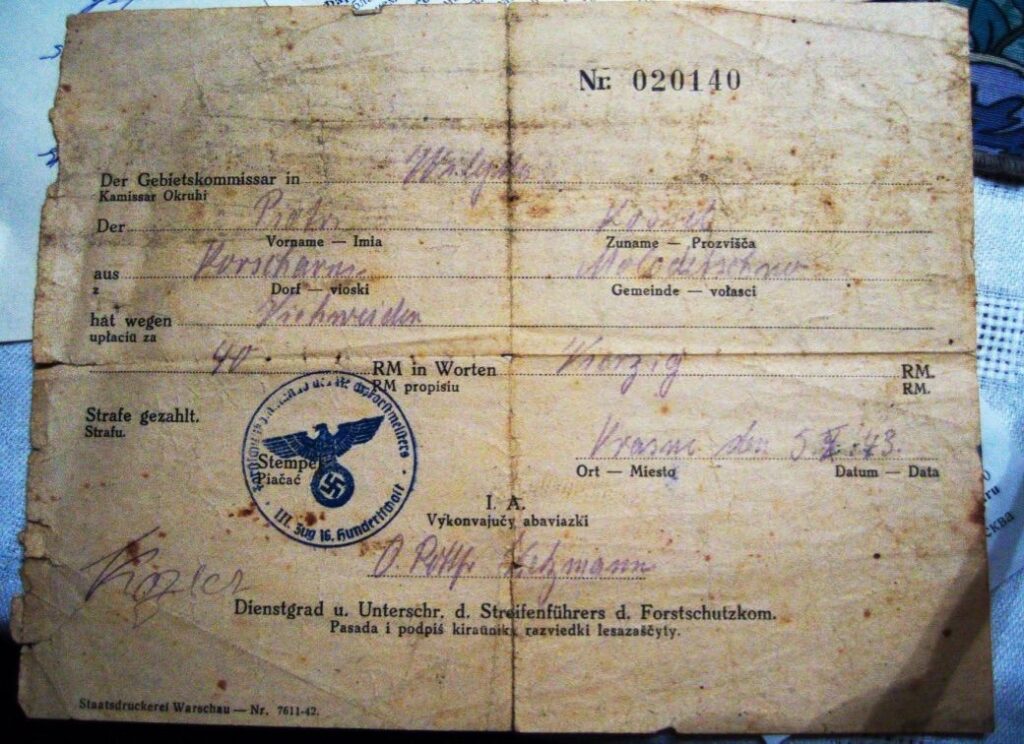 Nr. 020140
Der Gebietskommissar in
Kamissar Okruhi
Der Piotr
Vorname — Imia Zuname — Prozvišča
aus Molodetschno
z Dorf — vioski Gemeinde — vołasci
hat wegen Viehweiden
upłaciu za
40 RM in Worten Vierzig RM.
RM propisiu RM.
Strafe gezahlt.
Strafu.
Krasne den 5. 43.
Stempel Ort — Miesto Datum — Data
Piačać
III. Zug 16. Hundertschaft
I. A.
Vykonvajučy abaviazki
Dienstgrad u. Unterschr. d. Streifenführers d. Forstschutzkom.
Pasada i podpiś kiraŭnika razviedki lesazaščyty.
Staatsdruckerei Warschau — Nr. 7611-42.